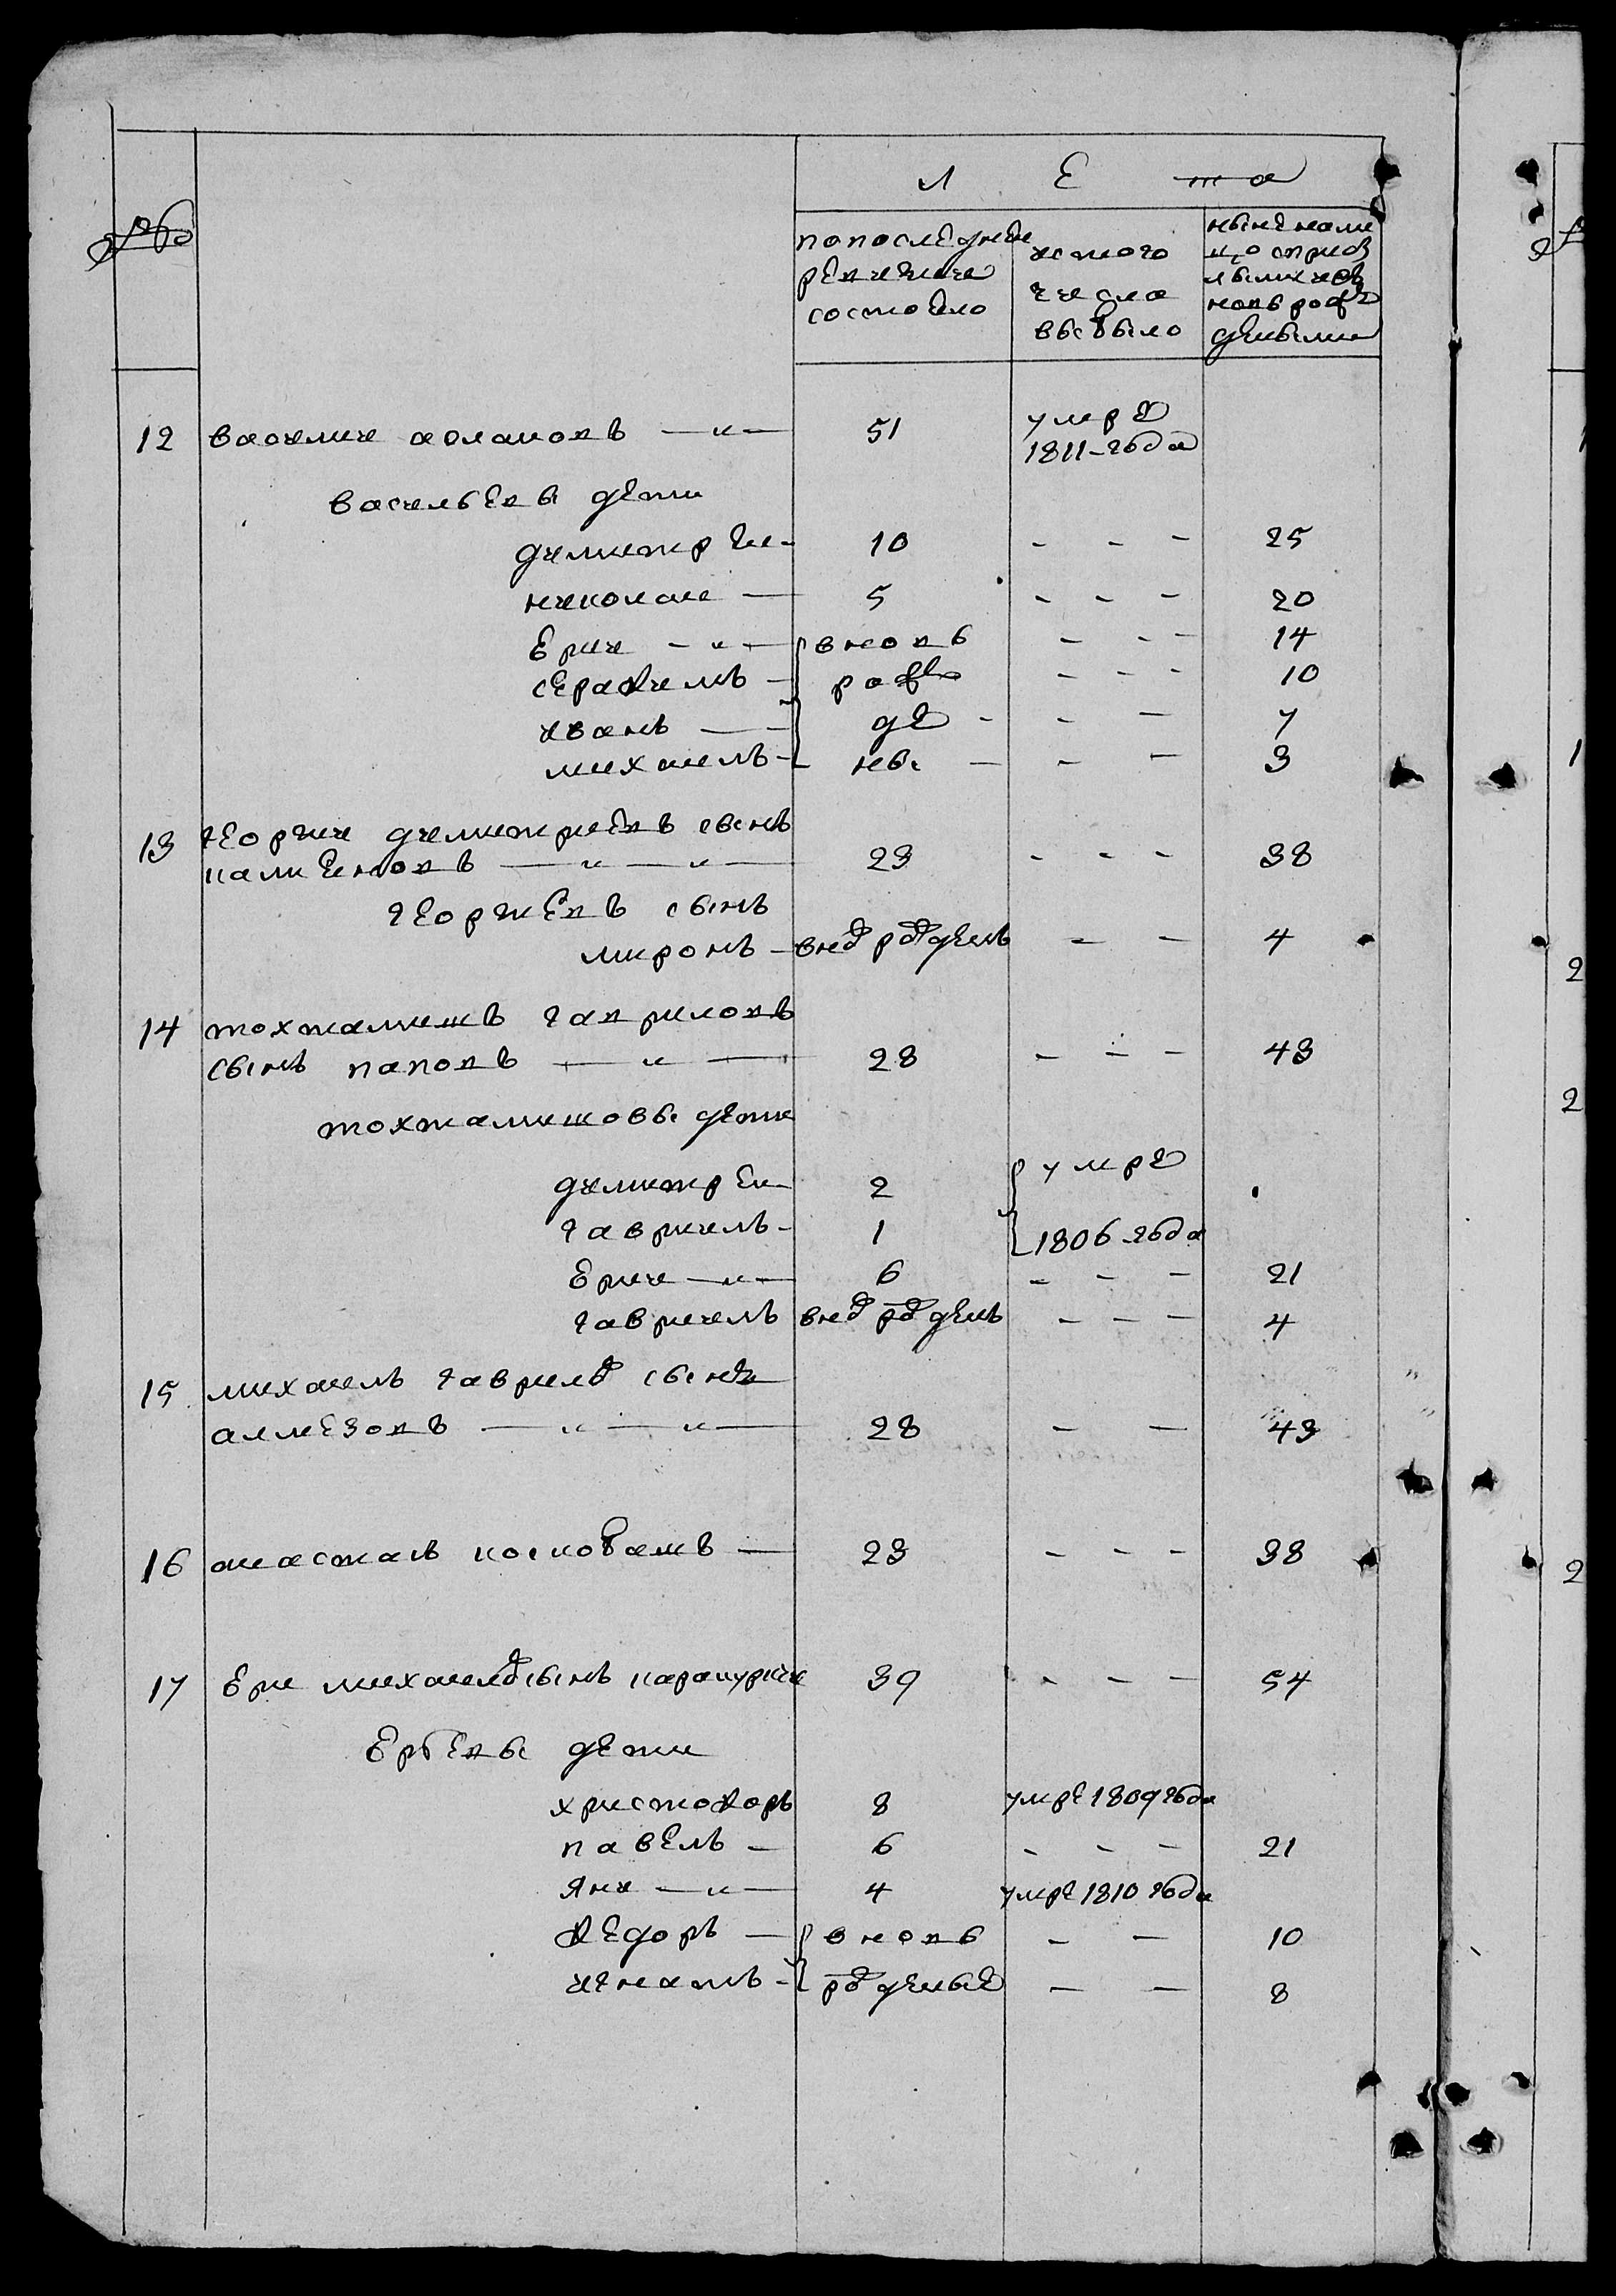 №
Лета
по последней ревизии состояло
из того числа выбыло
ныне на лицо с прибылыми и вновь рождеными
12 василии аслановъ — 51 умре 1811 года
васильевы дети
димитреи 10 - - - 25
николаи — 5 - - - 20
Ерии — вновь - - - 14
серафимъ — рож - - - 10
иванъ — де - - - 7
михаилъ — ны - - - 3
13 георгии димитриевъ сынъ
калиеновъ — 23 - - - 38
георгиевъ сынъ
миронъ — вно рожденъ - - 4
14 тохтамишъ гавриловъ
сынъ паповъ — 28 - - - 43
тохтамишовы дети
димитреи 2 умре
гавриилъ 1 1806 года
Ерии — 6 - - - 21
гавриилъ вно рожденъ - - - 4
15 михаилъ гаврило сынъ
алмезовъ — 28 - - 43
16 анастасъ — 23 - - - 38
17 Ери михаило сынъ 39 - - - 54
Ерьевы дети
христофоръ 8 умре 1809 года
павелъ — 6 - - - 21
яни — 4 умре 1810 года
федоръ — вновь - - 10
игнатъ — рожденые - - 8